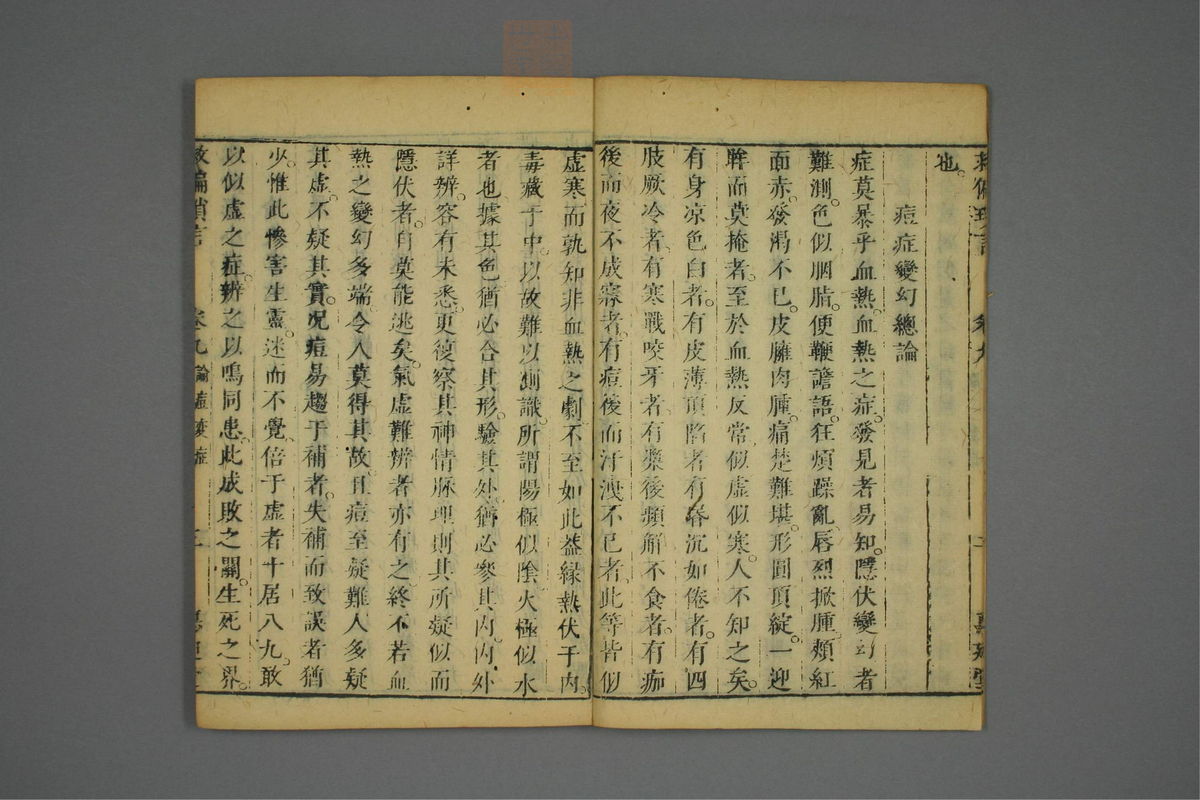 救偏瑣言 卷九 二 惠廸堂
也。
痘症變幻總論
症莫暴乎血熱。血熱之症。發見者易知。隱伏變幻者
難測。色似胭脂。便鞕譫語。狂煩躁亂。唇烈掀腫。頰紅
面赤。發渴不已。皮臃肉腫。痛楚難堪。形圓頂綻。一迎
眸而莫掩者。至於血熱反常似虛似寒。人不知之矣。
有身凉色白者。有皮薄頂陷者有昏沉如倦者。有四
肢厥冷者。有寒戰咬牙者。有漿後頻解不食者。有痂
後而夜不成寐者。有痘後而汗洩不已者。此等皆似
虛寒而孰知非血熱之劇。不至如此蓋緣熱伏于內。
毒藏于中。以故難以測識。所謂陽極似陰火極似水
者也據其色猶必合其形。驗其外。猶必參其內。內外
詳辨。容有未悉。更從察其神情脈理則其所疑似而
隱伏者。自莫能逃矣。氣虛難辨者亦有之。終不若血
熱之變幻多端。令人莫得其故。且痘至疑難人多疑
其虛。不疑其實。况痘易趨于補者。失補而致誤者猶
少。惟此慘害生靈。迷而不覺。倍于虛者十居八九。敢
以似虛之症。辨之以鳴同患。此成敗之關。生死之界。
救偏瑣言 卷九論痘變症 三